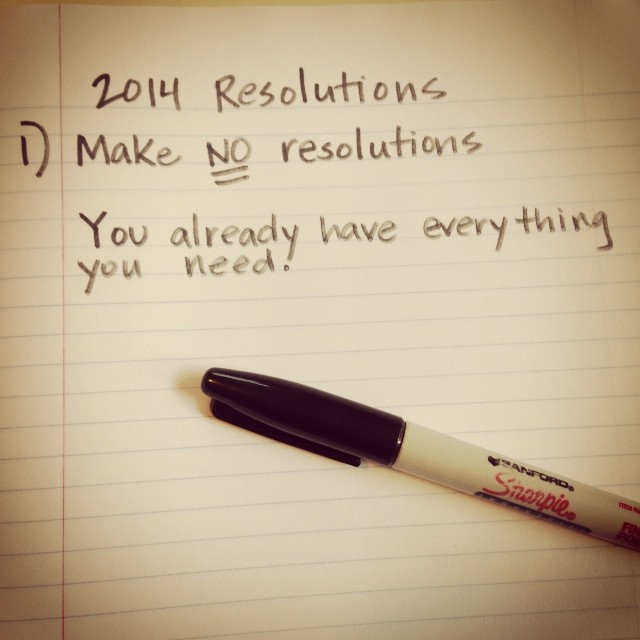 2014 Resolutions
1) Make NO resolutions
You already have everything
you need.
SANFORD®
Sharpie®